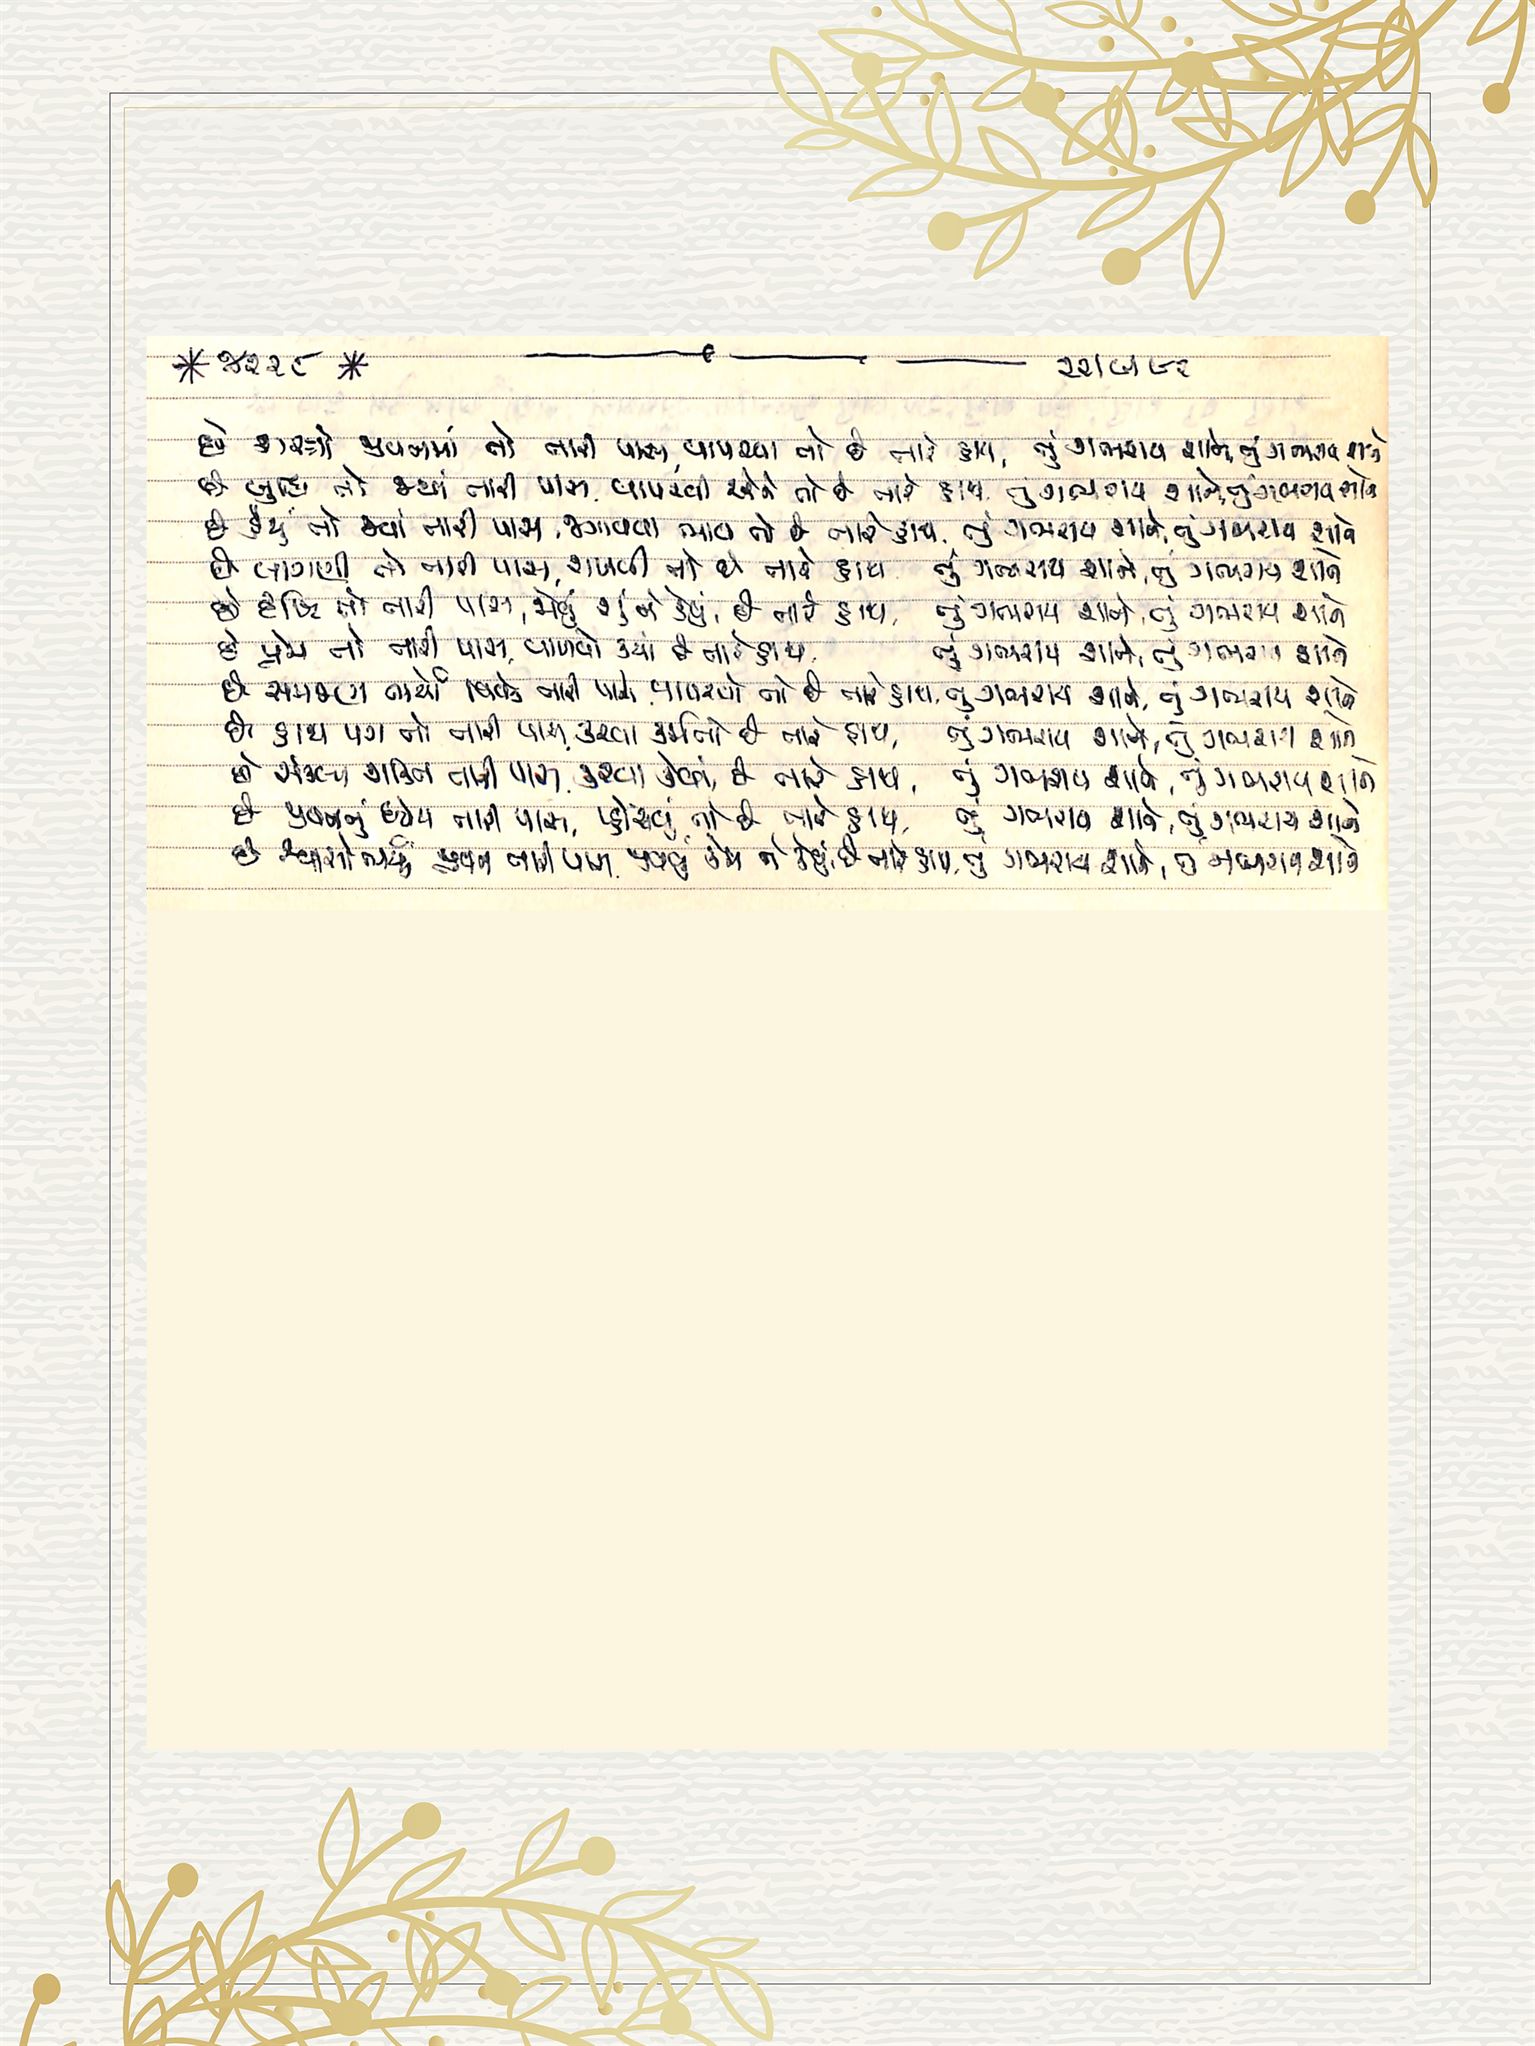 * ૪૨૨૯ * ૨૨/૯/૯૨
છે જીવનમાં તો તારી પાસ, વાપરવા તો છે તારે હાથ, તું ગભરાય શાને, તું ગભરાય શાને
છે બુદ્ધિ તો જ્યાં તારી પાસ, વાપરવી એને તો છે તારે હાથ, તું ગભરાય શાને, તું ગભરાય શાને
છે હૈયું તો જ્યાં તારી પાસ, જગાવવા ભાવ તો છે તારે હાથ, તું ગભરાય શાને, તું ગભરાય શાને
છે લાગણી તો તારી પાસ, રાખવી તો છે તારે હાથ તું ગભરાય શાને, તું ગભરાય શાને
છે દૃષ્ટિ તો તારી પાસ, જોવું શું ને કેવું, છે તારે હાથ, તું ગભરાય શાને, તું ગભરાય શાને
છે પ્રેમ તો તારી પાસ, વાળવો ક્યાં છે તારે હાથ, તું ગભરાય શાને, તું ગભરાય શાને
છે સમજણ ભર્યો વિવેક તારી પાસે, વાપરવો તો છે તારે હાથ, તું ગભરાય શાને, તું ગભરાય શાને
છે હાથ પગ તો તારી પાસ, કરવા કર્મ તો છે તારે હાથ, તું ગભરાય શાને, તું ગભરાય શાને
છે સંકલ્પ શક્તિ તારી પાસ, કરવા કેવાં, છે તારે હાથ, તું ગભરાય શાને, તું ગભરાય શાને
છે જીવનનું ધ્યેય તારી પાસ, પહોંચવું તો છે તારે હાથ, તું ગભરાય શાને, તું ગભરાય શાને
છે શ્વાસો ભર્યું જીવન તારી પાસ, જીવવું કેમ ને કેવું, છે તારે હાથ, તું ગભરાય શાને, તું ગભરાય શાને